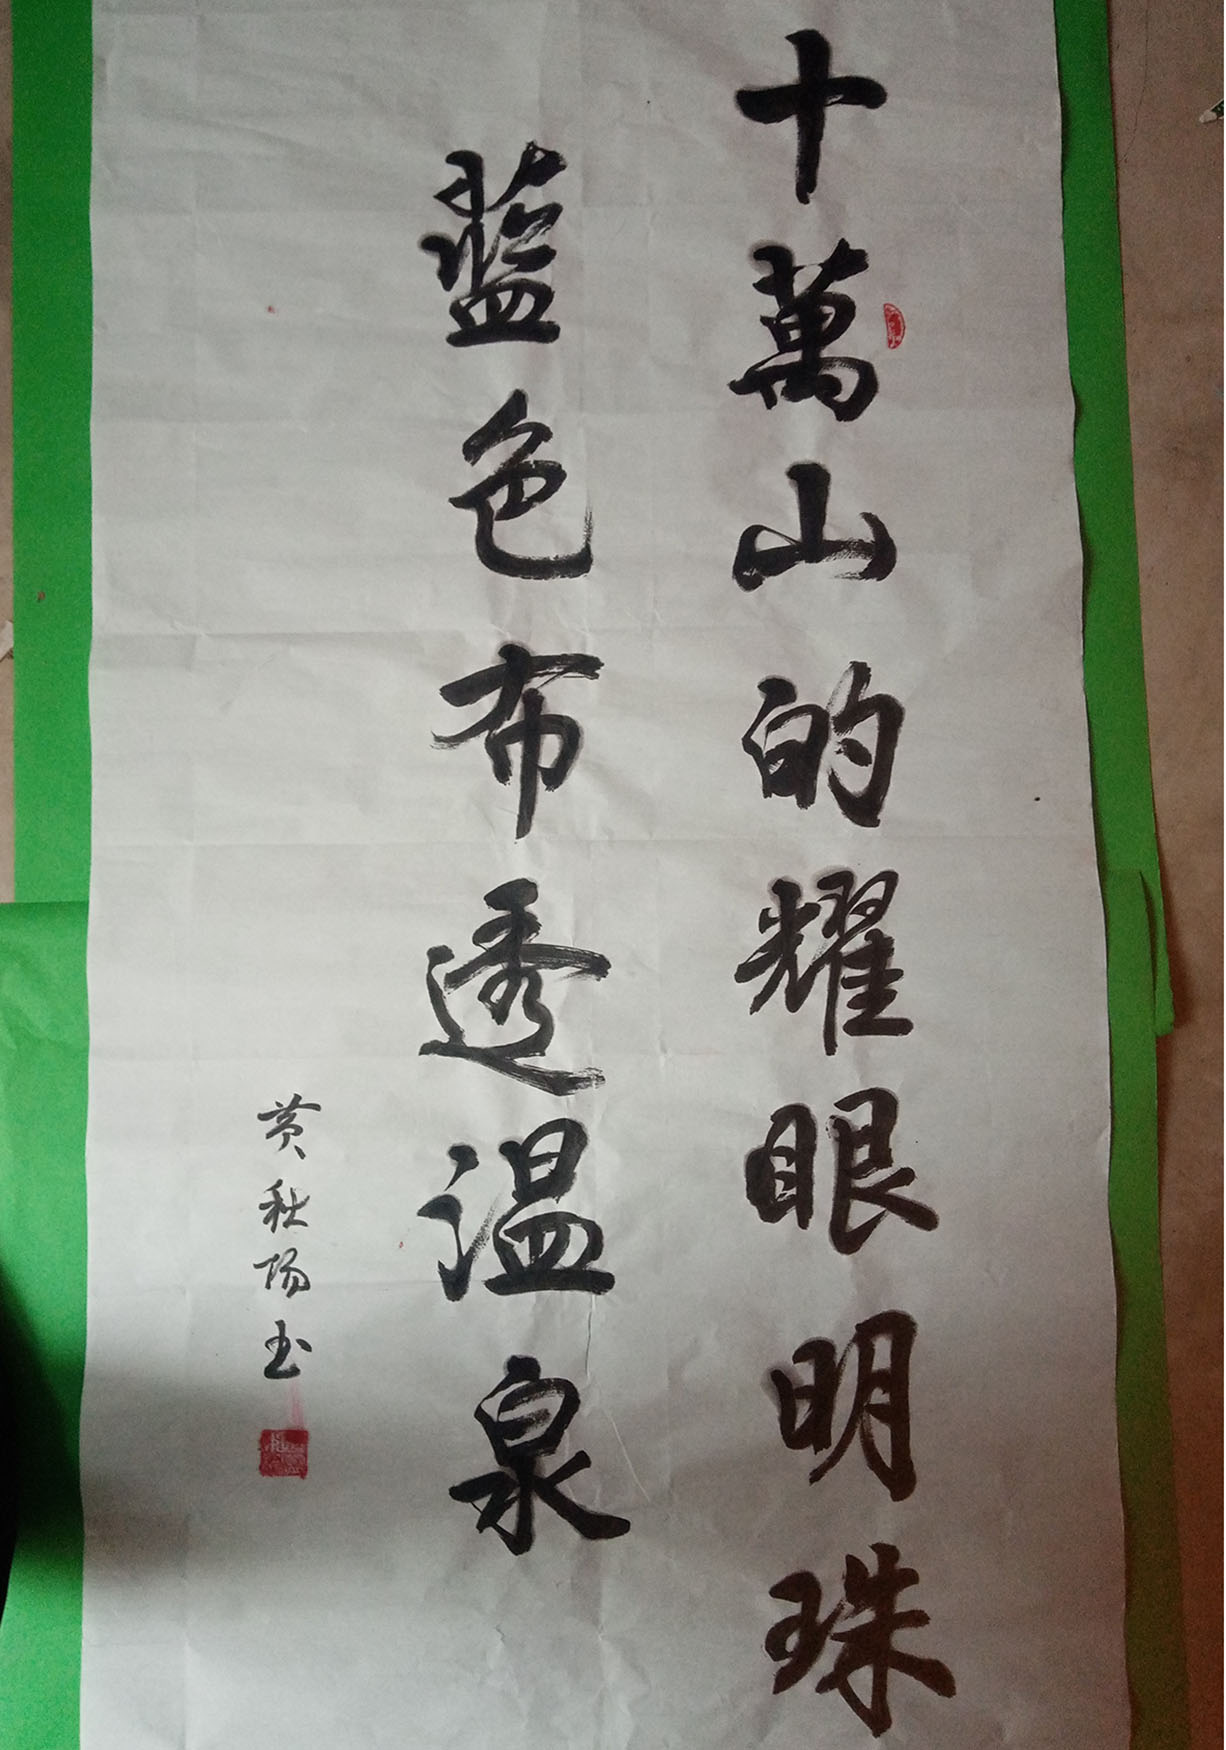 十萬山的耀眼明珠
藍色布透溫泉
黄秋陽书